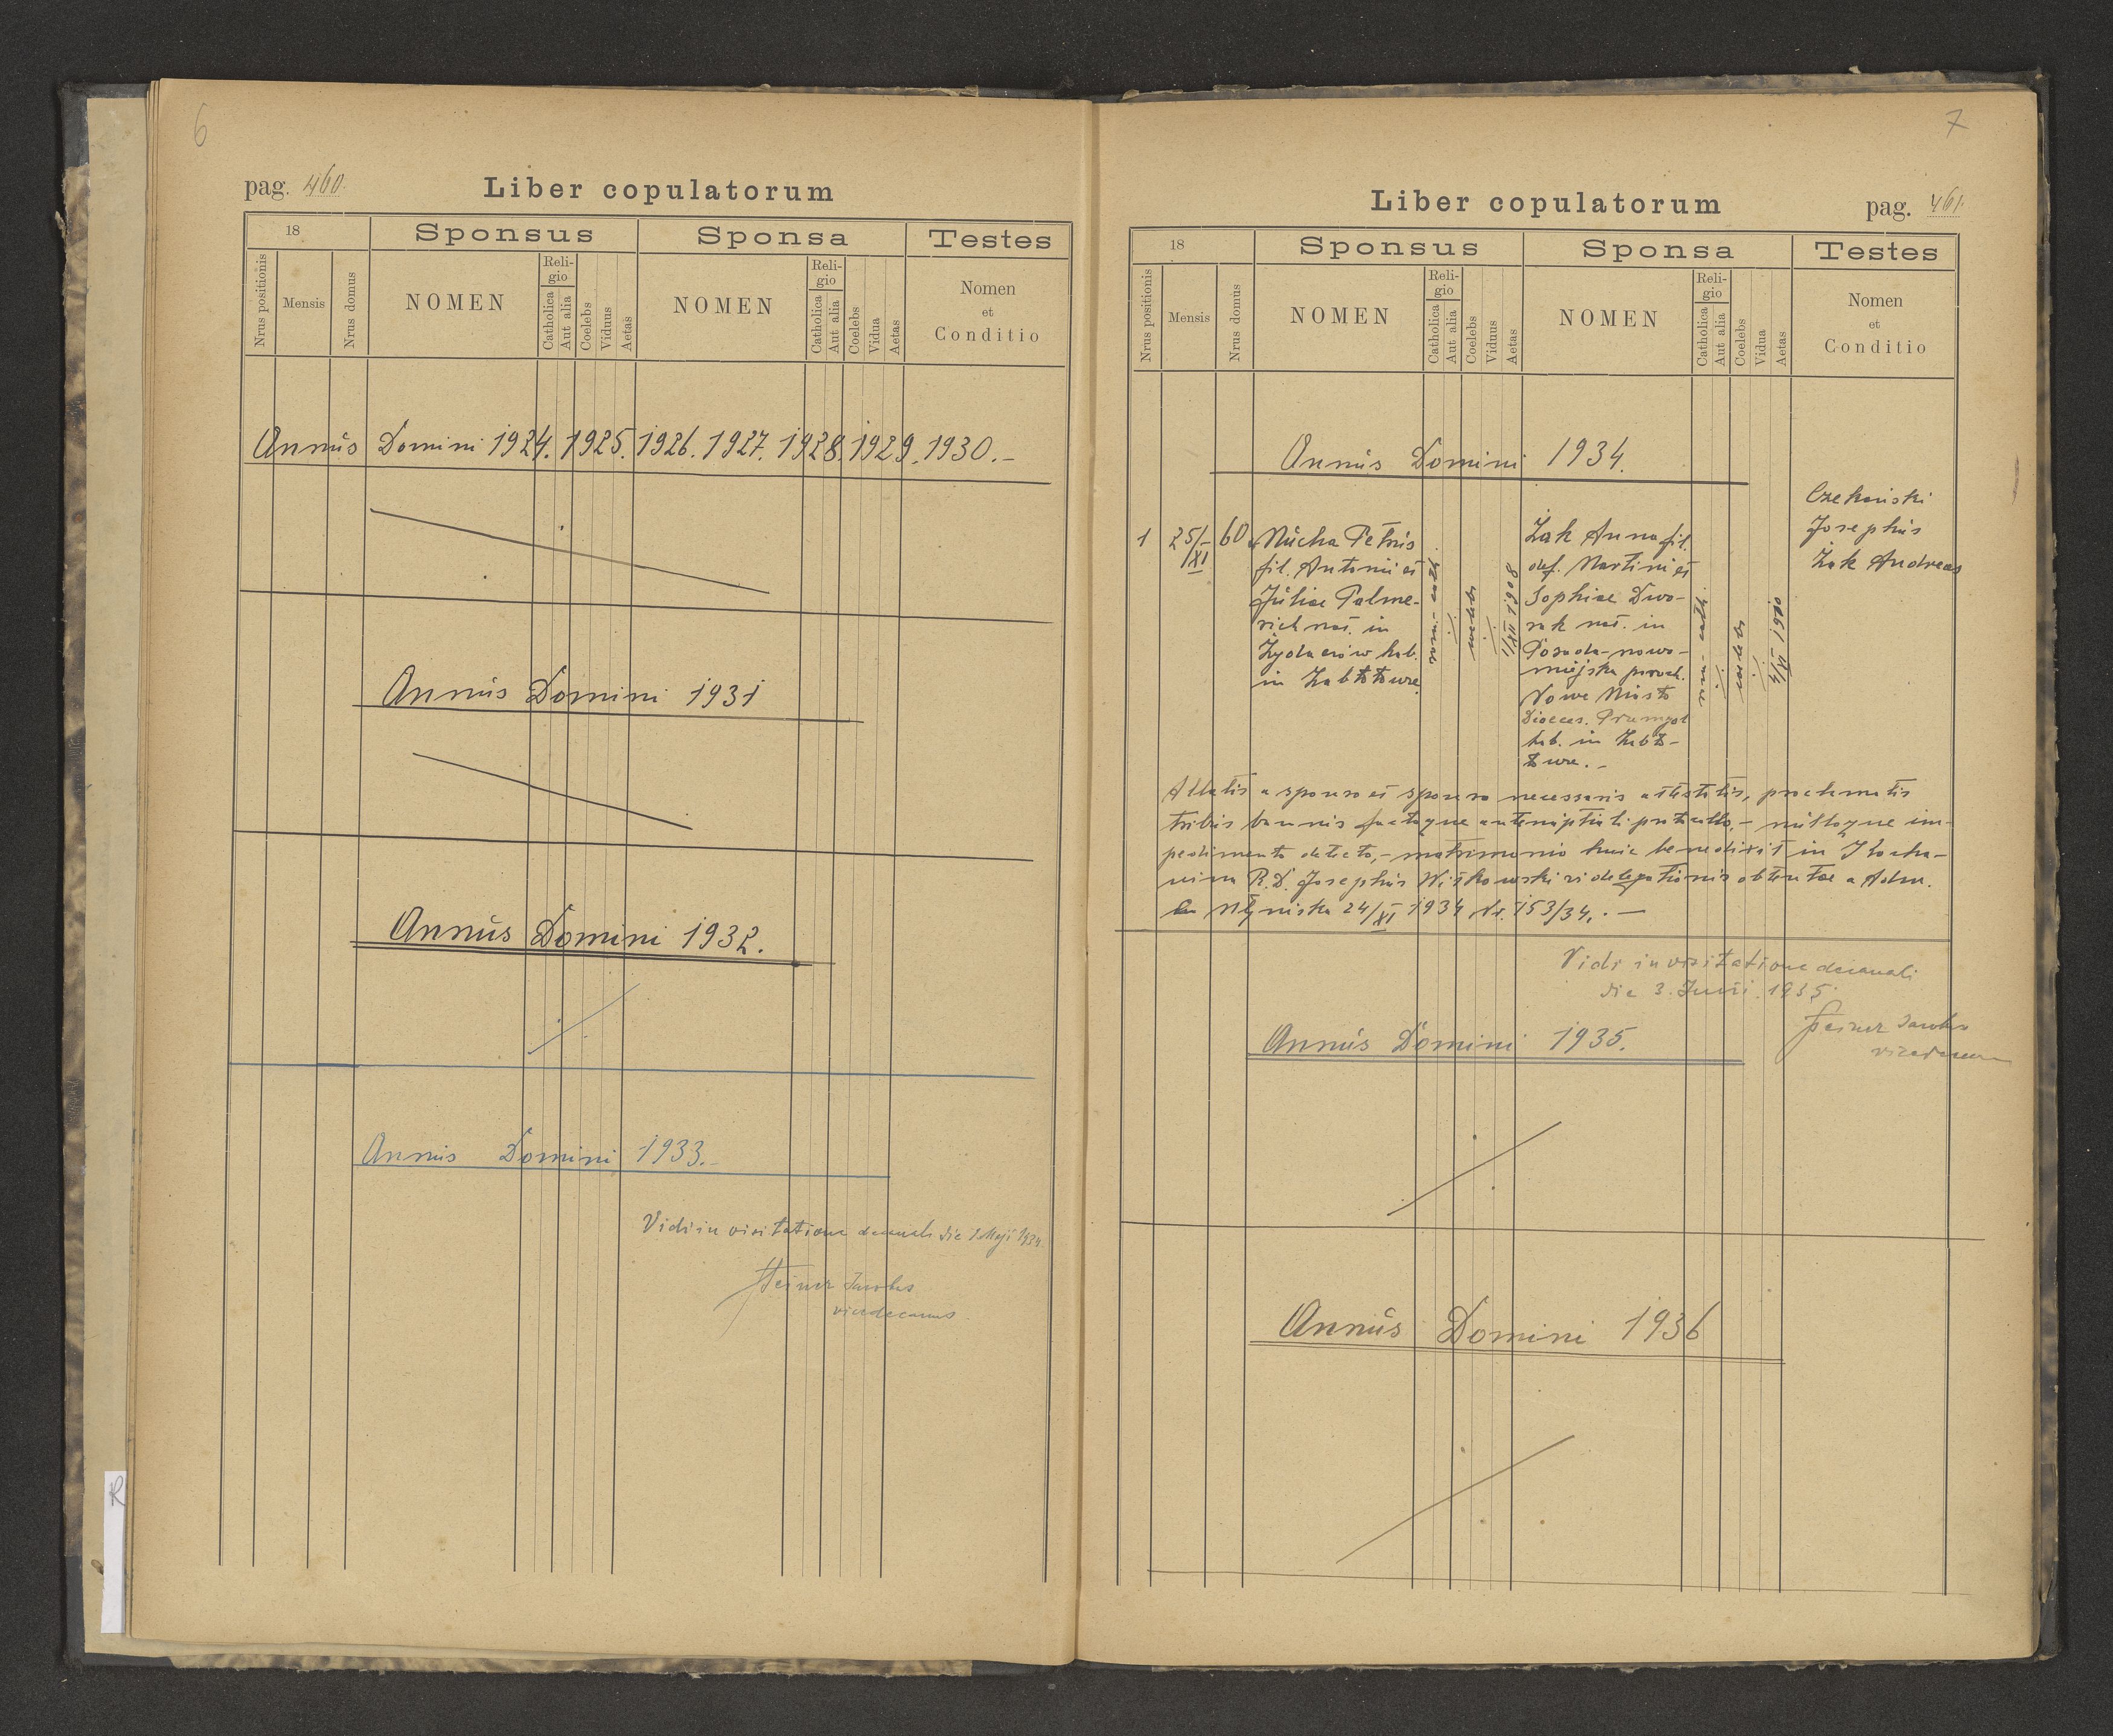 6
pag. 460.
Liber copulatorum
18
Sponsus
Sponsa
Testes
Nrus positionis
Mensis
Nrus domus
NOMEN
Religio
Catholica
Aut alia
Coelebs
Viduus
Aetas
NOMEN
Religio
Catholica
Aut alia
Coelebs
Vidua
Aetas
Nomen
et
Conditio
Annus Domini 1924. 1925. 1926. 1927. 1928. 1929. 1930.-
Annus Domini 1931
Annus Domini 1932.
Annus Domini 1933.-
Vidi in visitatione decanali die 1 Maji 1934
Jacobus
vicedecanus
7
Liber copulatorum
pag. 461.
18
Sponsus
Sponsa
Testes
Nrus positionis
Mensis
Nrus domus
NOMEN
Religio
Catholica
Aut alia
Coelebs
Viduus
Aetas
NOMEN
Religio
Catholica
Aut alia
Coelebs
Vidua
Aetas
Nomen
et
Conditio
Annus Domini 1934.
1
25/XI
60
Mucha Petrus
fil. Antonii et
Juliae Palme-
rich nat. in
Żydaczów hab.
in Zabłotowce
rom.-cath.
coelebs
1908
Żak Anna fil.
def. Martini et
Sophiae Dwo-
rak nat. in
Posada-nowo-
miejska paroch.
Nowe Miasto
Dioeces. Przemysl
hab. in Zabło-
towce.-
rom.-cath.
coelebs
1/4 1990
Czekański
Josephus
Żak Andreas
Allatis a sponso et sponsa necessariis attestatis, proclamatis
tribus bannis factoque antenuptiali protocollo,- nulloque im-
pedimento detecto,- matrimonio huic benedixit in
R.D. Josephus Witkowski vi delegationis obtentae a Adm.
Młyniska 24/XI 1934 Nr. 153/34. -
Vidi in visitatione decanali
die 3. Junii 1935.
Jacobus
vicedecanus
Annus Domini 1935.
Annus Domini 1936
R